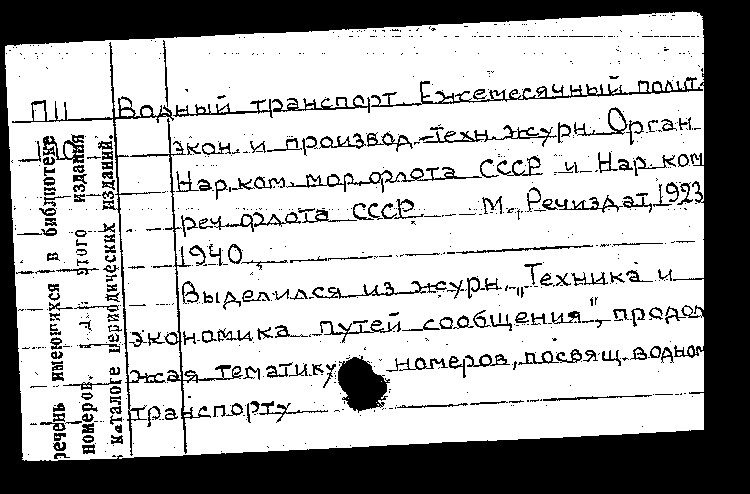 П11 Водный транспорт. Ежемесячный полит.-
экон. и производ.-техн. журн. Орган
Нар. ком. мор. флота СССР и Нар. ком
реч. флота СССР. М., Речиздат, 1923
1940.
Выделился из журн. „Техника и
экономика путей сообщения", продол
жая тематику номеров, посвящ. водном
транспорту.
речень имеющихся в библиотеке
номеров. этого издания
каталоге периодических изданий.